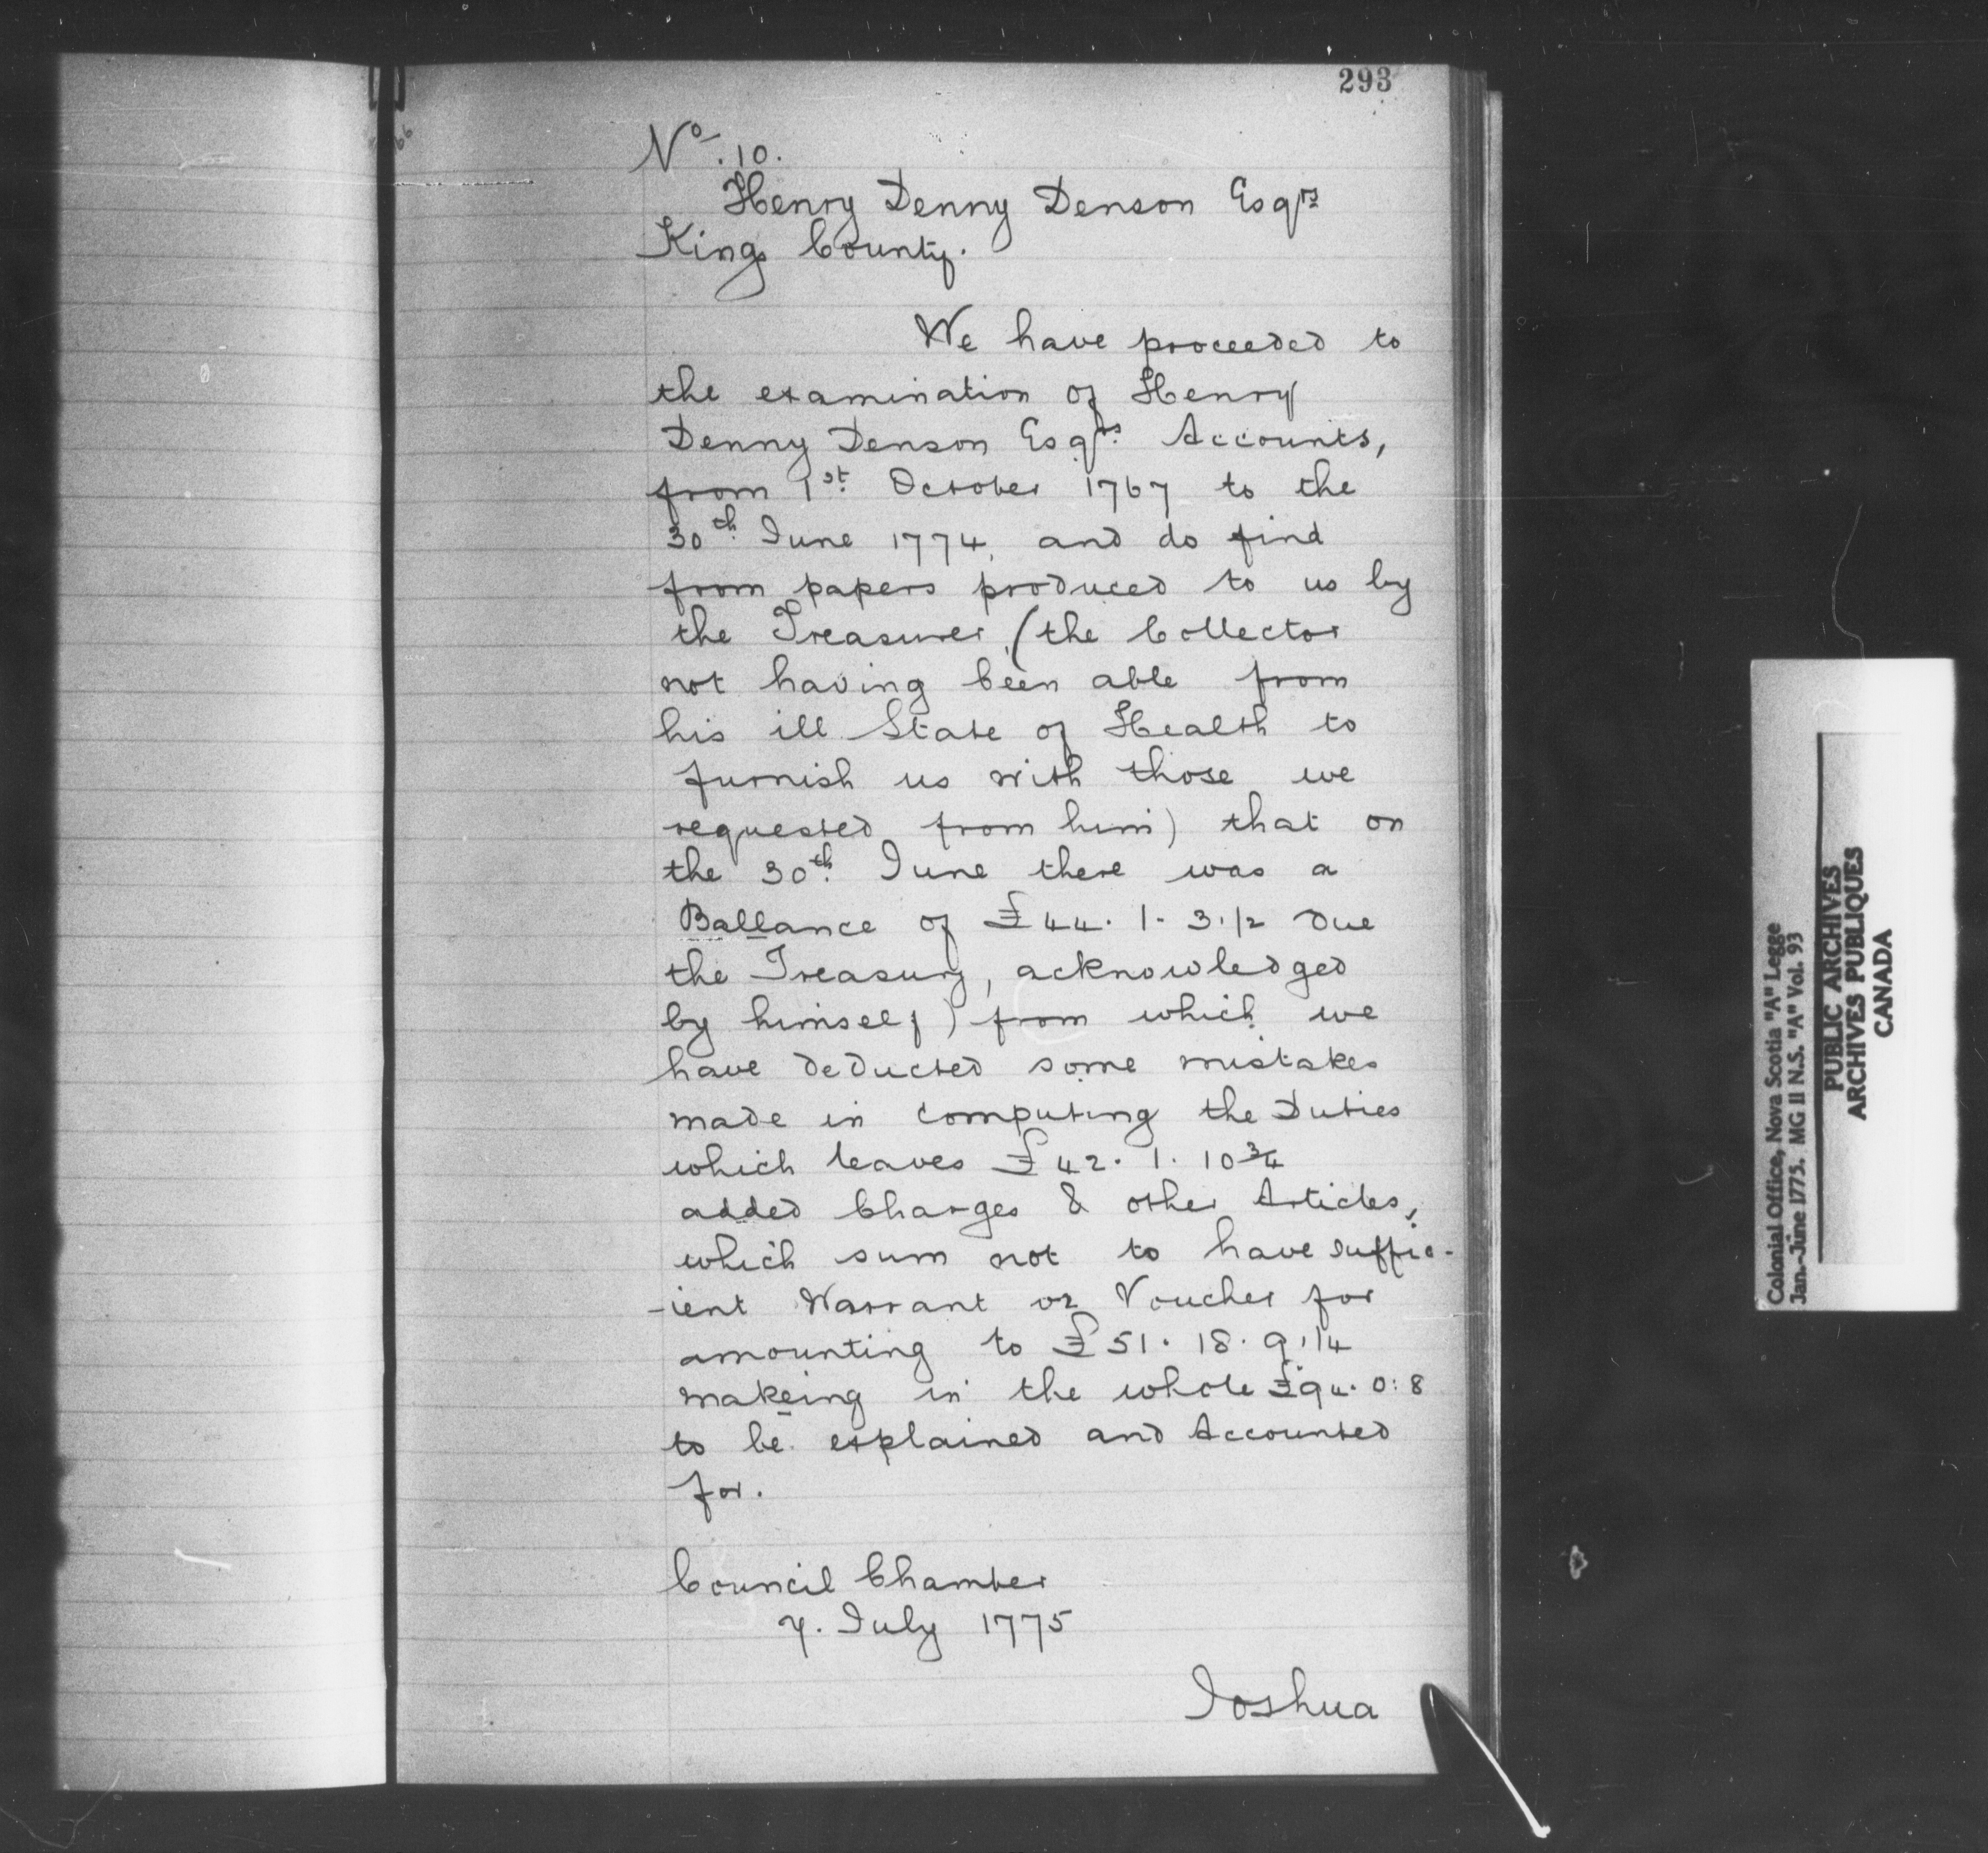 293
No. 10.
Henry Denny Denson Esqrs
Kings County.
We have proceeded to
the examination of Henry
Denny Denson Esqrs. Accounts,
from 1st. October 1767 to the
30th. June 1774, and do find
from papers produced to us by
the Treasurer, (the Collector
not having been able from
his ill State of Health to
furnish us with those we
requested from him) that on
the 30th. June there was a
Ballance of £44. 1. 3.1/2 due
the Treasury, acknowledged
by himself) from which we
have deducted some mistakes
made in computing the Duties
which leaves £42. 1. 10 3/4
added Charges & other Articles,
which sum not to have suffic-
-ient Warrant or Voucher for
amounting to £51. 18. 9.1/4
makeing in the whole £94. 0:8
to be explained and Accounted
for.
Council Chamber
7. July 1775
Joshua
Colonial Office, Nova Scotia "A" Legge
Jan.-June 1775. MG 11 N.S. "A" Vol. 93
PUBLIC ARCHIVES
ARCHIVES PUBLIQUES
CANADA